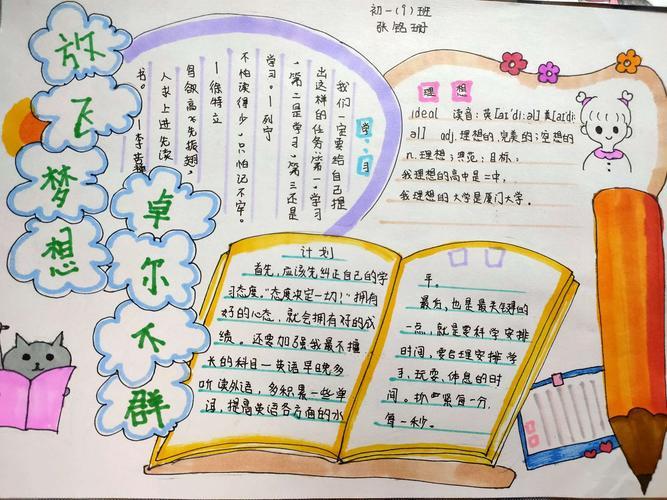 初一(9)班
张铭珊
放飞梦想
卓尔不群
学习
我们一定要给自己提
出这样的任务:第一,学习
,第二是学习,第三还是
学习。—列宁
不怕读得少,只怕记不牢。
—徐特立
鸟欲高飞先振翅,
人求上进先读
书。—李苦禅
理想
ideal 读音:英[aɪ'di:əl]美[aɪdi:
əl] adj.理想的,完美的;空想的
n.理想;典范;目标,
我理想的高中是二中,
我理想的大学是厦门大学。
计划
首先,应该先纠正自己的学
习态度。"态度决定一切!"拥有
好的心态,就会拥有好的成
绩。还要加强我最不擅
长的科目—英语早晚多
听读外语,多积累一些单
词,提高英语各方面的水
平。
最后,也是最关键的
一点,就是要科学安排
时间,要合理安排学
习、玩耍、休息的时
间。抓紧每一分,
每一秒。